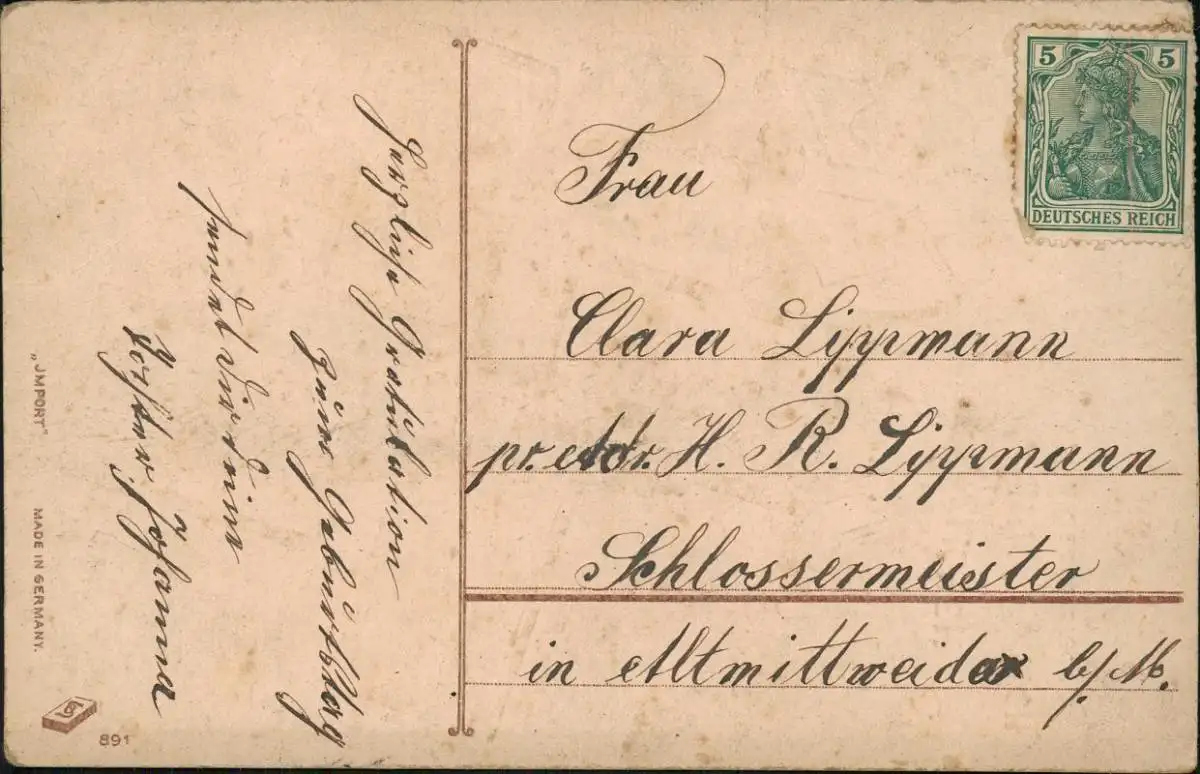 Herzliche Gratulation
zum Geburtstag
sendet dir deine
Tochter Johanna
5 5
DEUTSCHES REICH
Frau
Clara Lippmann
pr. Adr. H. R. Lippmann
Schlossermeister
in Altmittweida b/M.
„JMPORT"
MADE IN GERMANY.
891